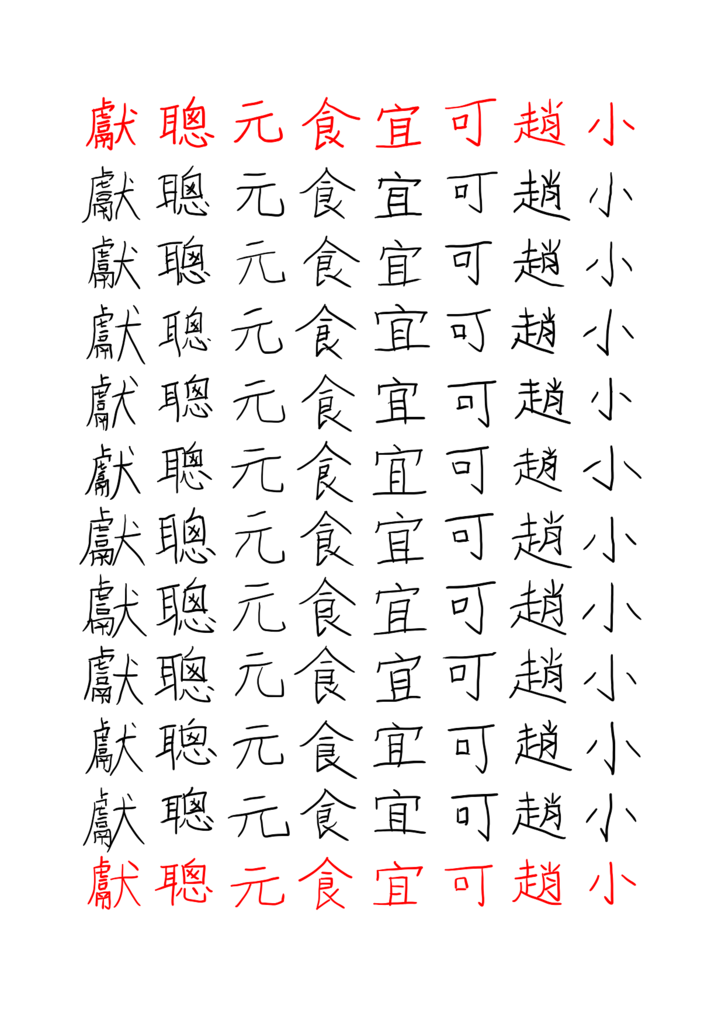 獻聰元食宜可趙小
獻聰元食宜可趙小
獻聰元食宜可趙小
獻聰元食宜可趙小
獻聰元食宜可趙小
獻聰元食宜可趙小
獻聰元食宜可趙小
獻聰元食宜可趙小
獻聰元食宜可趙小
獻聰元食宜可趙小
獻聰元食宜可趙小
獻聰元食宜可趙小